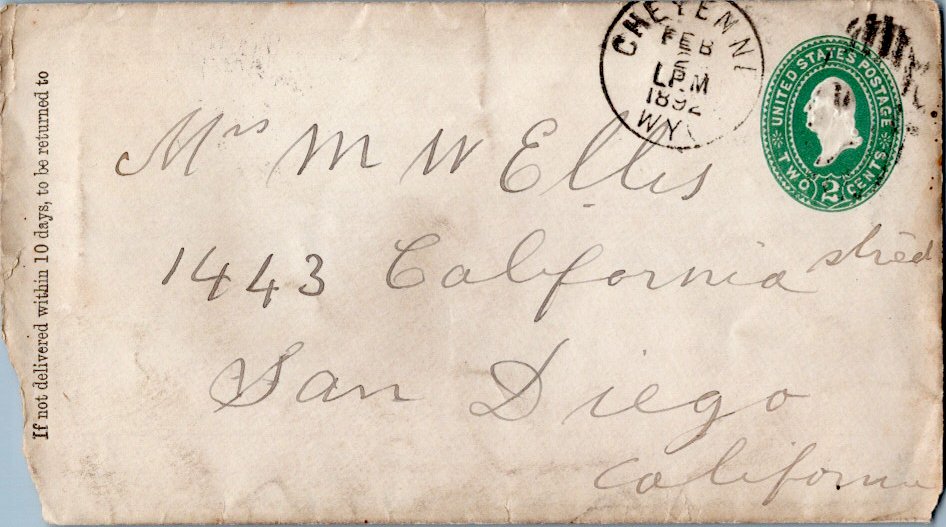 If not delivered within 10 days, to be returned to
CHEYENNE
FEB
2
1 PM
1892
WY
UNITED STATES POSTAGE
TWO 2 CENTS
Mrs M W Ellis
1443 California street
San Diego
California